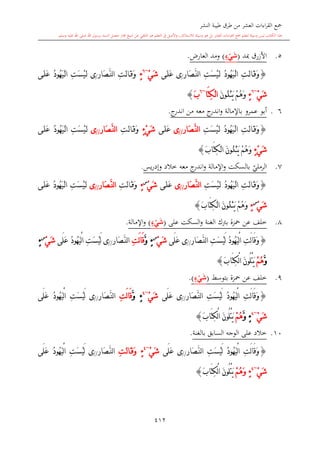 جمع القراءات العشر من طرق طيبة النشر
٥. الأزرق بمد (شَيْءٍ) ومد العارض.
﴿ وَقَالَتِ ٱلْيَهُودُ لَيْسَتِ ٱلنَّصَارَىٰ عَلَىٰ شَيْءٍ وَقَالَتِ ٱلنَّصَارَىٰ لَيْسَتِ ٱلْيَهُودُ عَلَىٰ
شَيْءٍ وَهُمْ يَتْلُونَ ٱلْكِتَابَ ﴾
٦. أبو عمرو بالإمالة واندرج معه من اندرج.
﴿ وَقَالَتِ ٱلْيَهُودُ لَيْسَتِ ٱلنَّصَارَىٰ عَلَىٰ شَيْءٍ وَقَالَتِ ٱلنَّصَارَىٰ لَيْسَتِ ٱلْيَهُودُ عَلَىٰ
شَيْءٍ وَهُمْ يَتْلُونَ ٱلْكِتَابَ ﴾
٧. الرملي بالسكت والإمالة واندرج معه خلاد وإدريس.
﴿ وَقَالَتِ ٱلْيَهُودُ لَيْسَتِ ٱلنَّصَارَىٰ عَلَىٰ شَيْءٍ وَقَالَتِ ٱلنَّصَارَىٰ لَيْسَتِ ٱلْيَهُودُ عَلَىٰ
شَيْءٍ وَهُمْ يَتْلُونَ ٱلْكِتَابَ ﴾
٨. خلف عن حمزة بترك الغنة والسكت على (شَيْءٍ) والإمالة.
﴿ وَقَالَتِ ٱلْيَهُودُ لَيْسَتِ ٱلنَّصَارَىٰ عَلَىٰ شَيْءٍ وَّقَالَتِ ٱلنَّصَارَىٰ لَيْسَتِ ٱلْيَهُودُ عَلَىٰ شَيْءٍ
وَّهُمْ يَتْلُونَ ٱلْكِتَابَ ﴾
٩. خلف عن حمزة بتوسط (شَيْءٍ).
﴿ وَقَالَتِ ٱلْيَهُودُ لَيْسَتِ ٱلنَّصَارَىٰ عَلَىٰ شَيْءٍ وَّقَالَتِ ٱلنَّصَارَىٰ لَيْسَتِ ٱلْيَهُودُ عَلَىٰ
شَيْءٍ وَّهُمْ يَتْلُونَ ٱلْكِتَابَ ﴾
١٠. خلاد على الوجه السابق بالغنة.
﴿ وَقَالَتِ ٱلْيَهُودُ لَيْسَتِ ٱلنَّصَارَىٰ عَلَىٰ شَيْءٍ وَقَالَتِ ٱلنَّصَارَىٰ لَيْسَتِ ٱلْيَهُودُ عَلَىٰ
شَيْءٍ وَهُمْ يَتْلُونَ ٱلْكِتَابَ ﴾
٤١٢